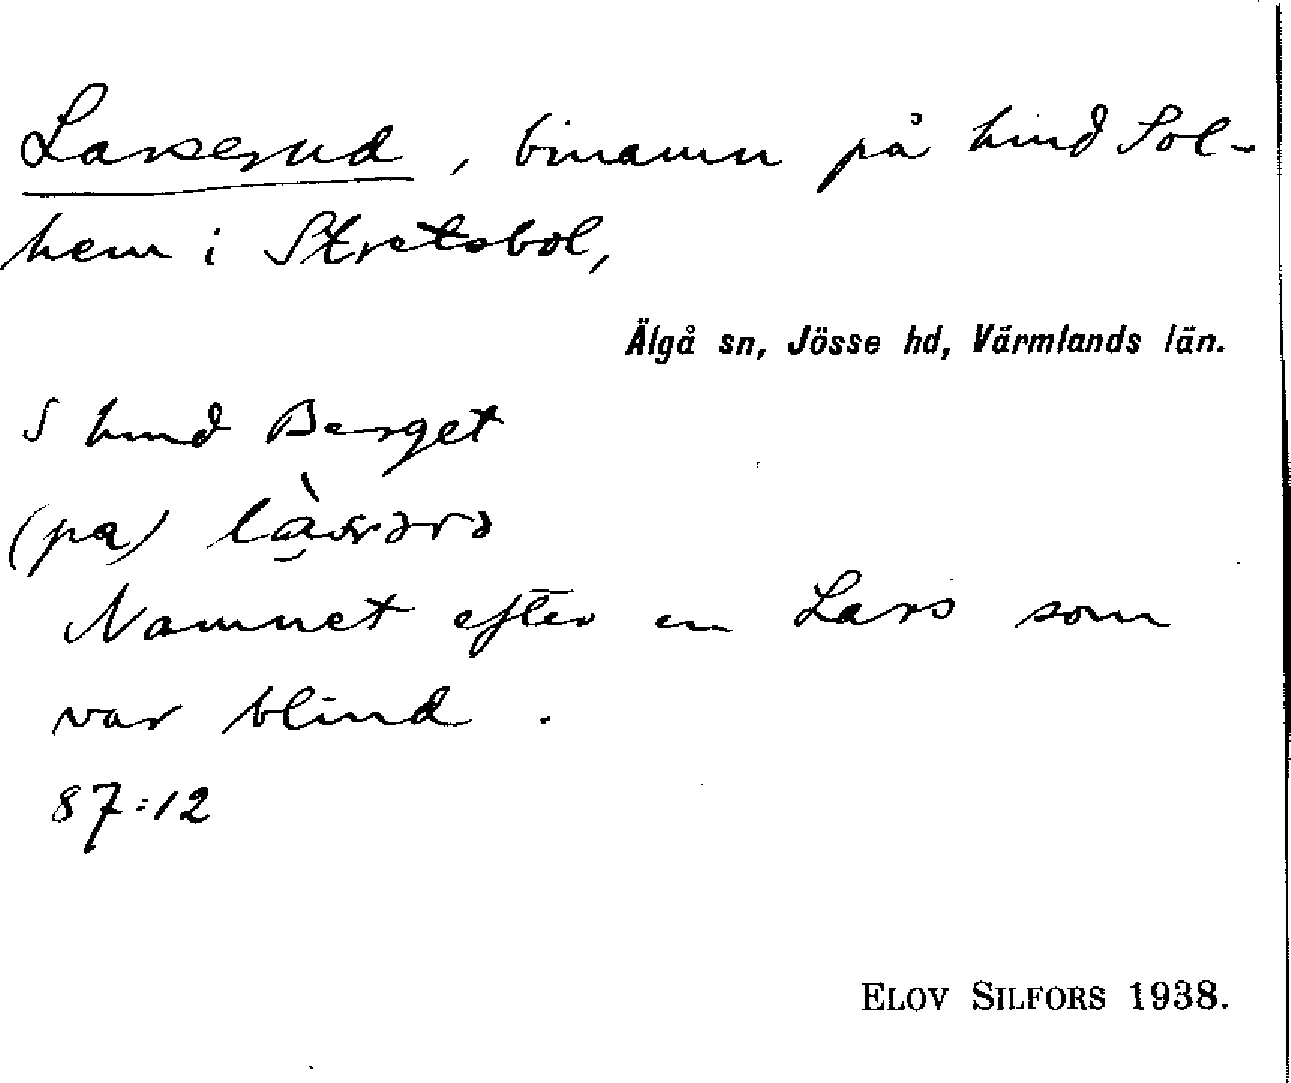 Larserud, binamn på hmd Sol-
hem i Stretsbol,
Älgå sn, Jösse hd, Värmlands län.
S hmd Berget
(pa)
Namnet efter en Lars som
var blind.
87:12
ELOV SILFORS 1938.